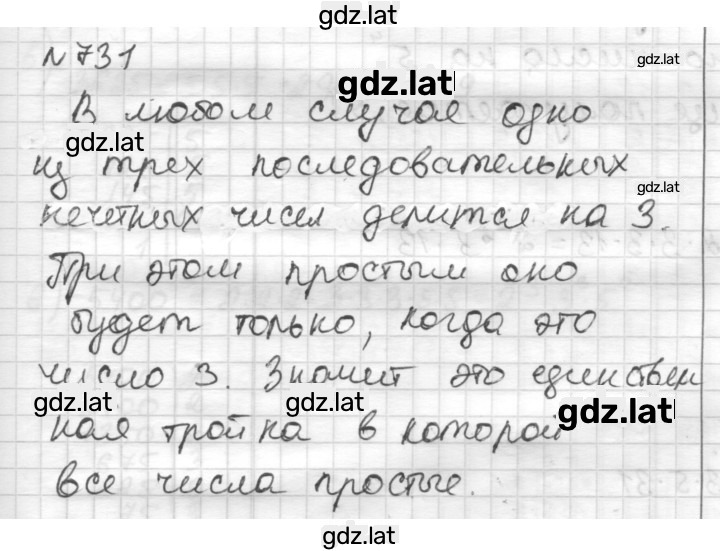 gdz.lat
№ 731
gdz.lat
gdz.lat
В любом случае одно
gdz.lat
из трех последовательных
gdz.lat
нечетных чисел делится на 3.
При этом простым оно
будет только, когда это
число 3. Значит это единствен
gdz.lat
gdz.lat
gdz.lat
ная тройка в которой
все числа простые.
gdz.lat